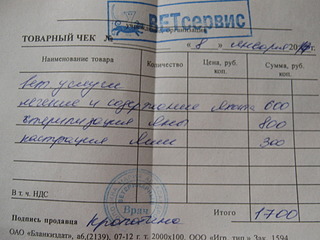 ВЕТсервис
ТОВАРНЫЙ ЧЕК №
« 8 » января 20 г.
Наименование товара Количество Цена, руб. коп. Сумма, руб. коп.
вет услуги
лечение и содержание 600
стерилизация 800
кастрация 300
В т. ч. НДС
Врач
Итого 1700
Подпись продавца
ОАО «Бланкиздат», а6,(2139), 07-12 г. т. 2000х100. ООО «Игр. тип.» Зак. 1594